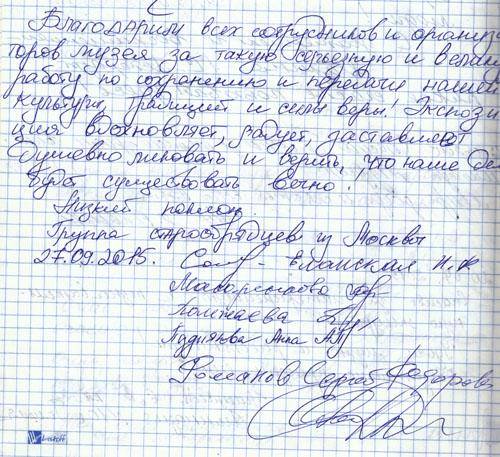 Благодарим всех сотрудников и организа
торов музея за такую серьезную и велику
работу по сохранению и передачи нашей
культуры, традиций и силы веры! Экспози
ция вдохновляет, радует, заставляет
душевно ликовать и верить, что наше де
будет существовать вечно!
Низкий поклон
Группа старообрядцев из Москвы
27.09.2015.
Анна
Романов Сергей Федорови